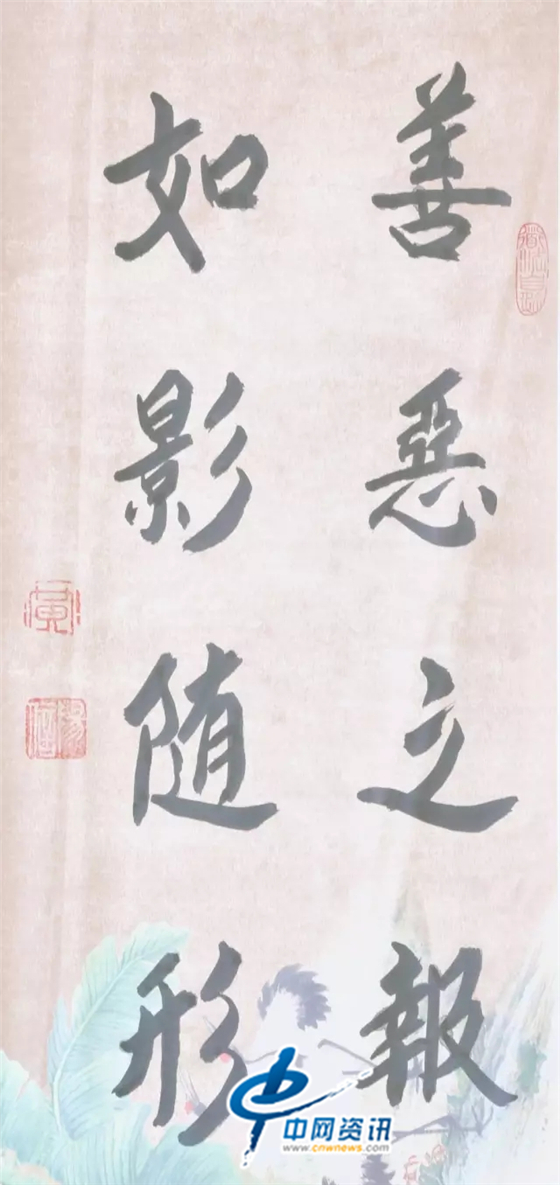 善惡之報
如影随形
中网资讯
www.cnwnews.com